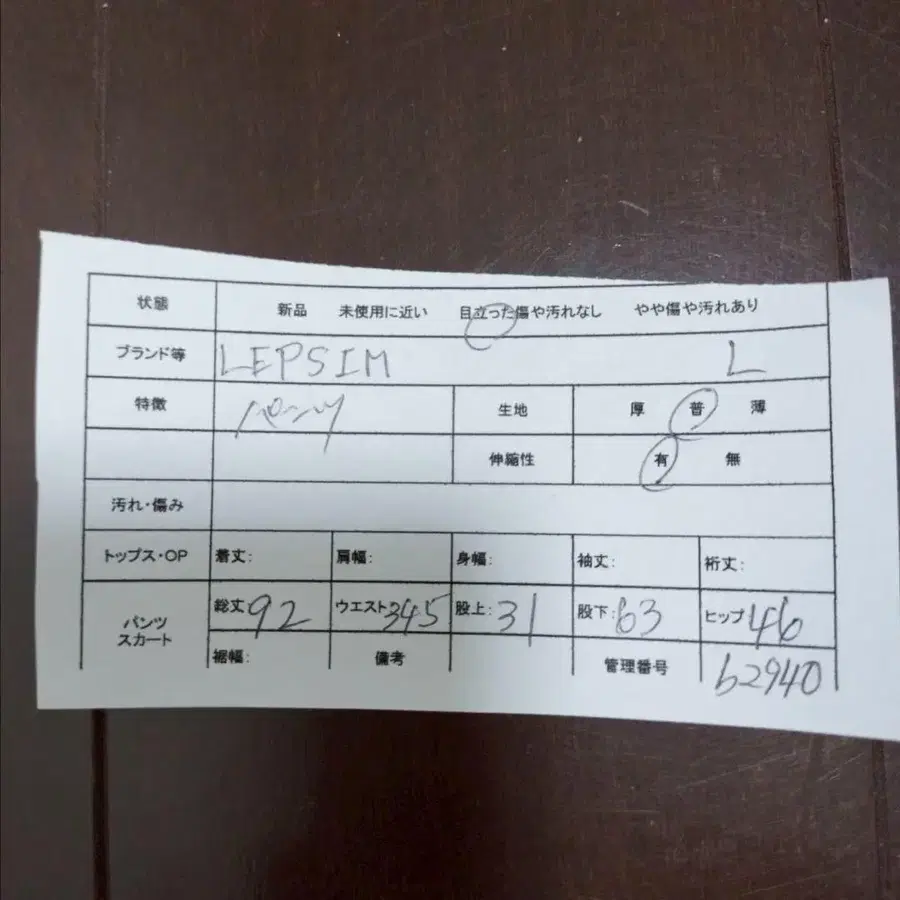 状態 新品 未使用に近い 目立った傷や汚れなし やや傷や汚れあり
ブランド等 LEPSIM L
特徴 パンツ 生地 厚 普 薄
伸縮性 有 無
汚れ・傷み
トップス・OP 着丈: 肩幅: 身幅: 袖丈: 裄丈:
パンツ スカート 総丈 92 ウエスト 345 股上: 31 股下: 63 ヒップ 46
裾幅: 備考 管理番号 b2940